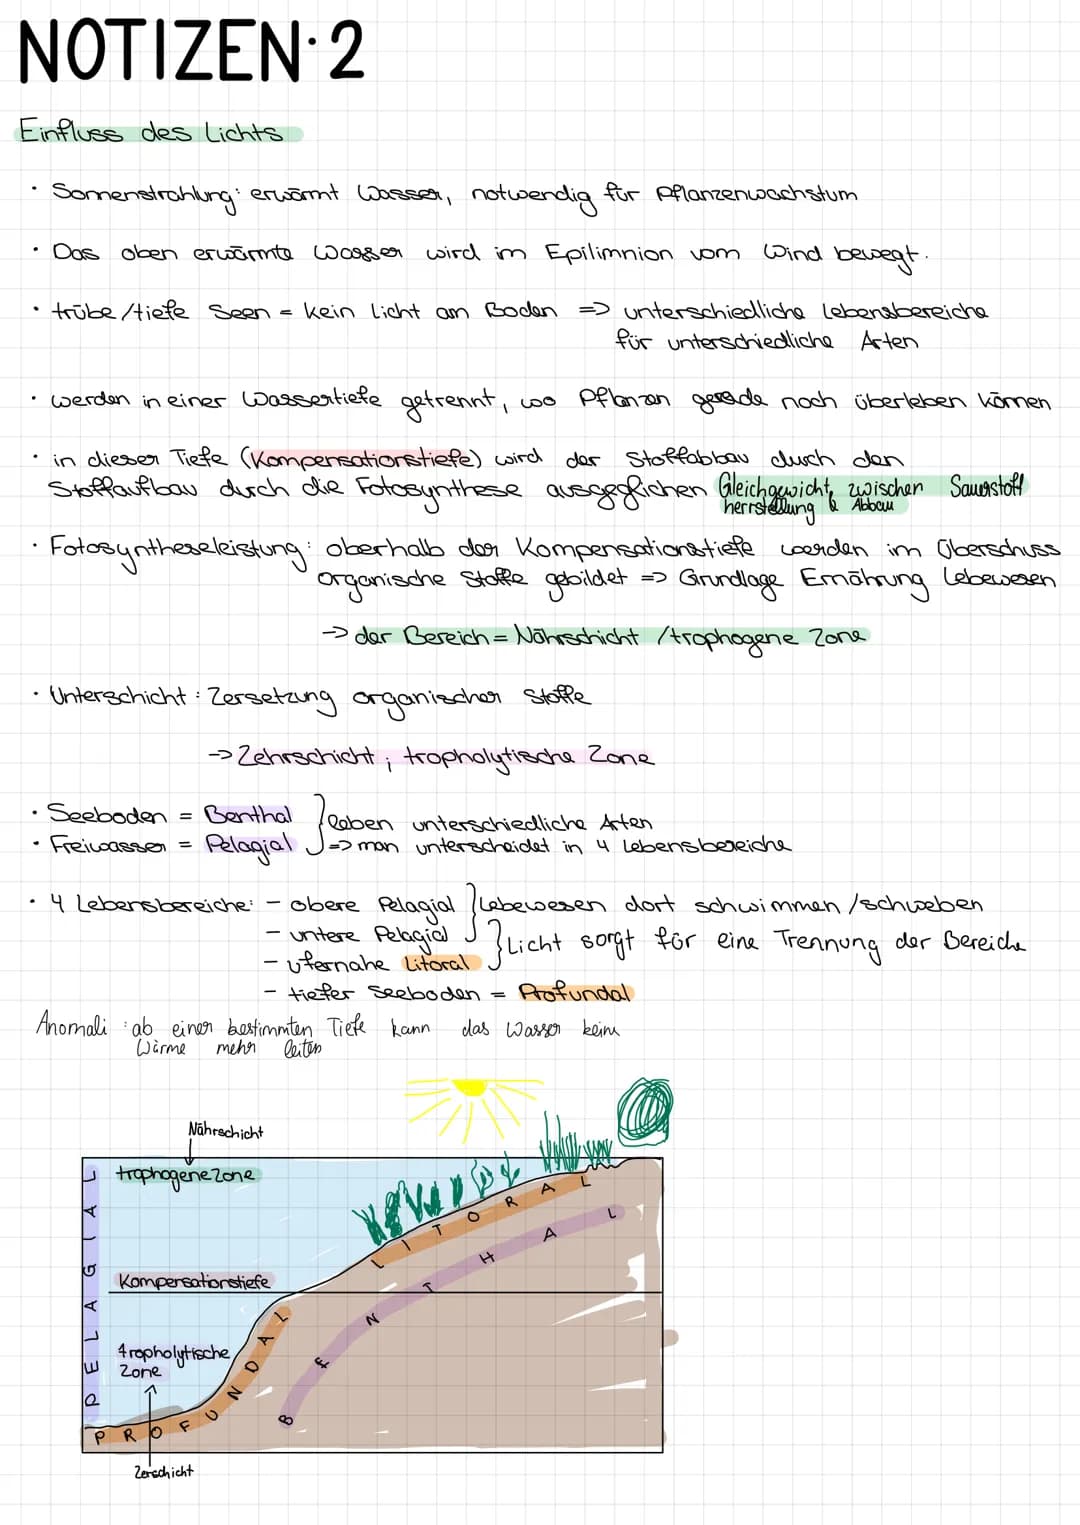 NOTIZEN·2
Einfluss des Lichts
· Sonnenstrahlung: erwärmt Wasser, notwendig für Pflanzenwachstum
· Das oben erwärmte Wasser wird im Epilimnion vom Wind bewegt.
· trübe/tiefe Seen = kein Licht am Boden => unterschiedliche Lebensbereiche
für unterschiedliche Arten
· werden in einer Wassertiefe getrennt, wo Pflanzen gerade noch überleben können
· in dieser Tiefe (Kompensationstiefe) wird der Stoffabbau durch den
Stoffaufbau durch die Fotosynthese ausgeglichen Gleichgewicht zwischen Sauerstoff
herrstellung & Abbau
· Fotosyntheseleistung: oberhalb der Kompensationstiefe werden im Überschuss
organische Stoffe gebildet => Grundlage Ernährung Lebewesen
-> der Bereich = Nährschicht /trophogene Zone
· Unterschicht: Zersetzung organischer Stoffe
-> Zehrschicht; tropholytische Zone
· Seeboden = Benthal } leben unterschiedliche Arten
· Freiwasser = Pelagial => man unterscheidet in 4 Lebensbereiche
· 4 Lebensbereiche: - obere Pelagial } Lebewesen dort schwimmen /schweben
- untere Pelagial } Licht sorgt für eine Trennung der Bereiche
- ufernahe Litoral
- tiefer Seeboden = Profundal
Anomali: ab einer bestimmten Tiefe kann das Wasser keine
Wärme mehr leiten
Nährschicht
trophogene Zone
PELAGIAL
LITORAL
BENTHAL
Kompensationstiefe
tropholytische
Zone
PROFUNDAL
Zerschicht